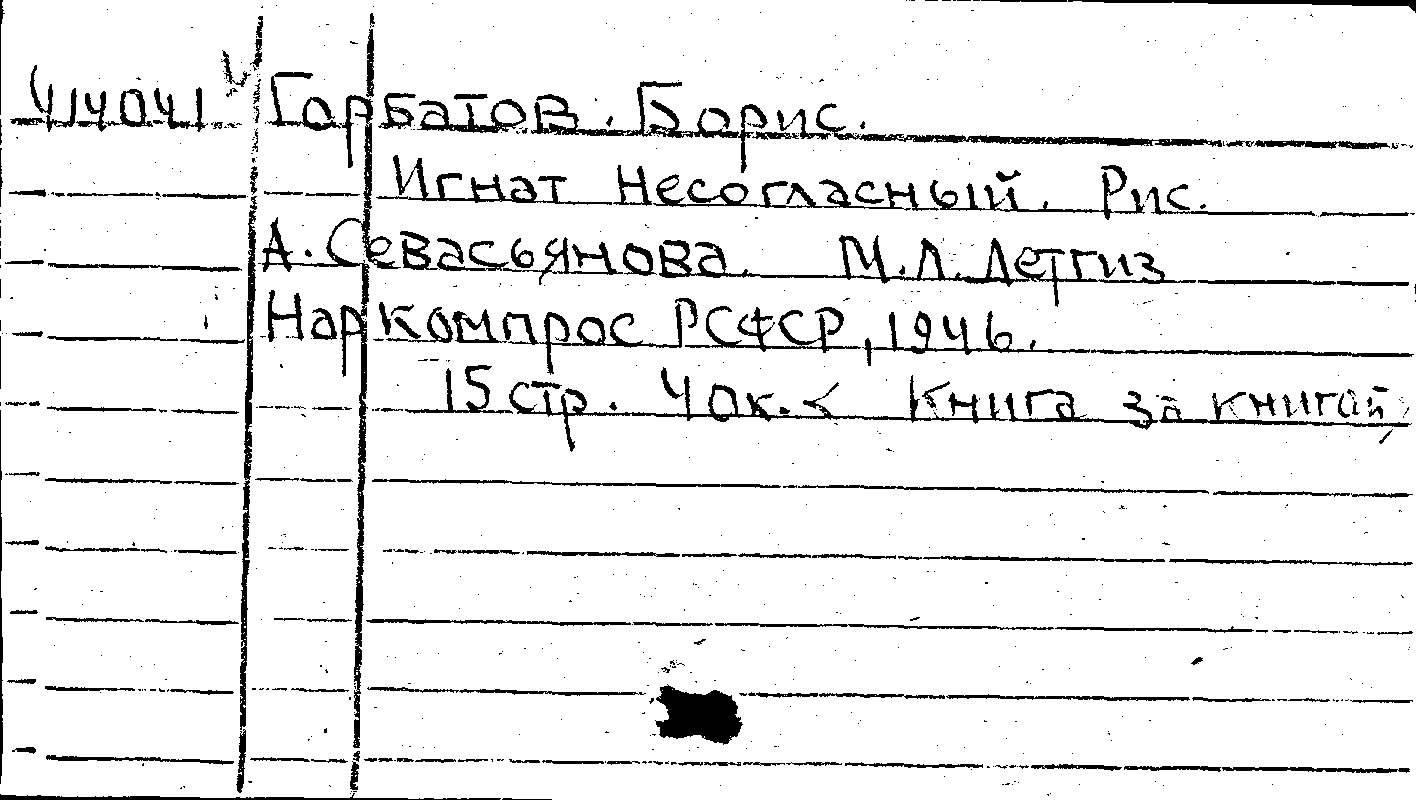 414041 Горбатов. Борис.
Игнат Несогласный. Рис.
А. Севасьянова. М.Л. Детгиз
Наркомпрос РСФСР, 1946.
15 стр. 40к. < Книга за книгой,